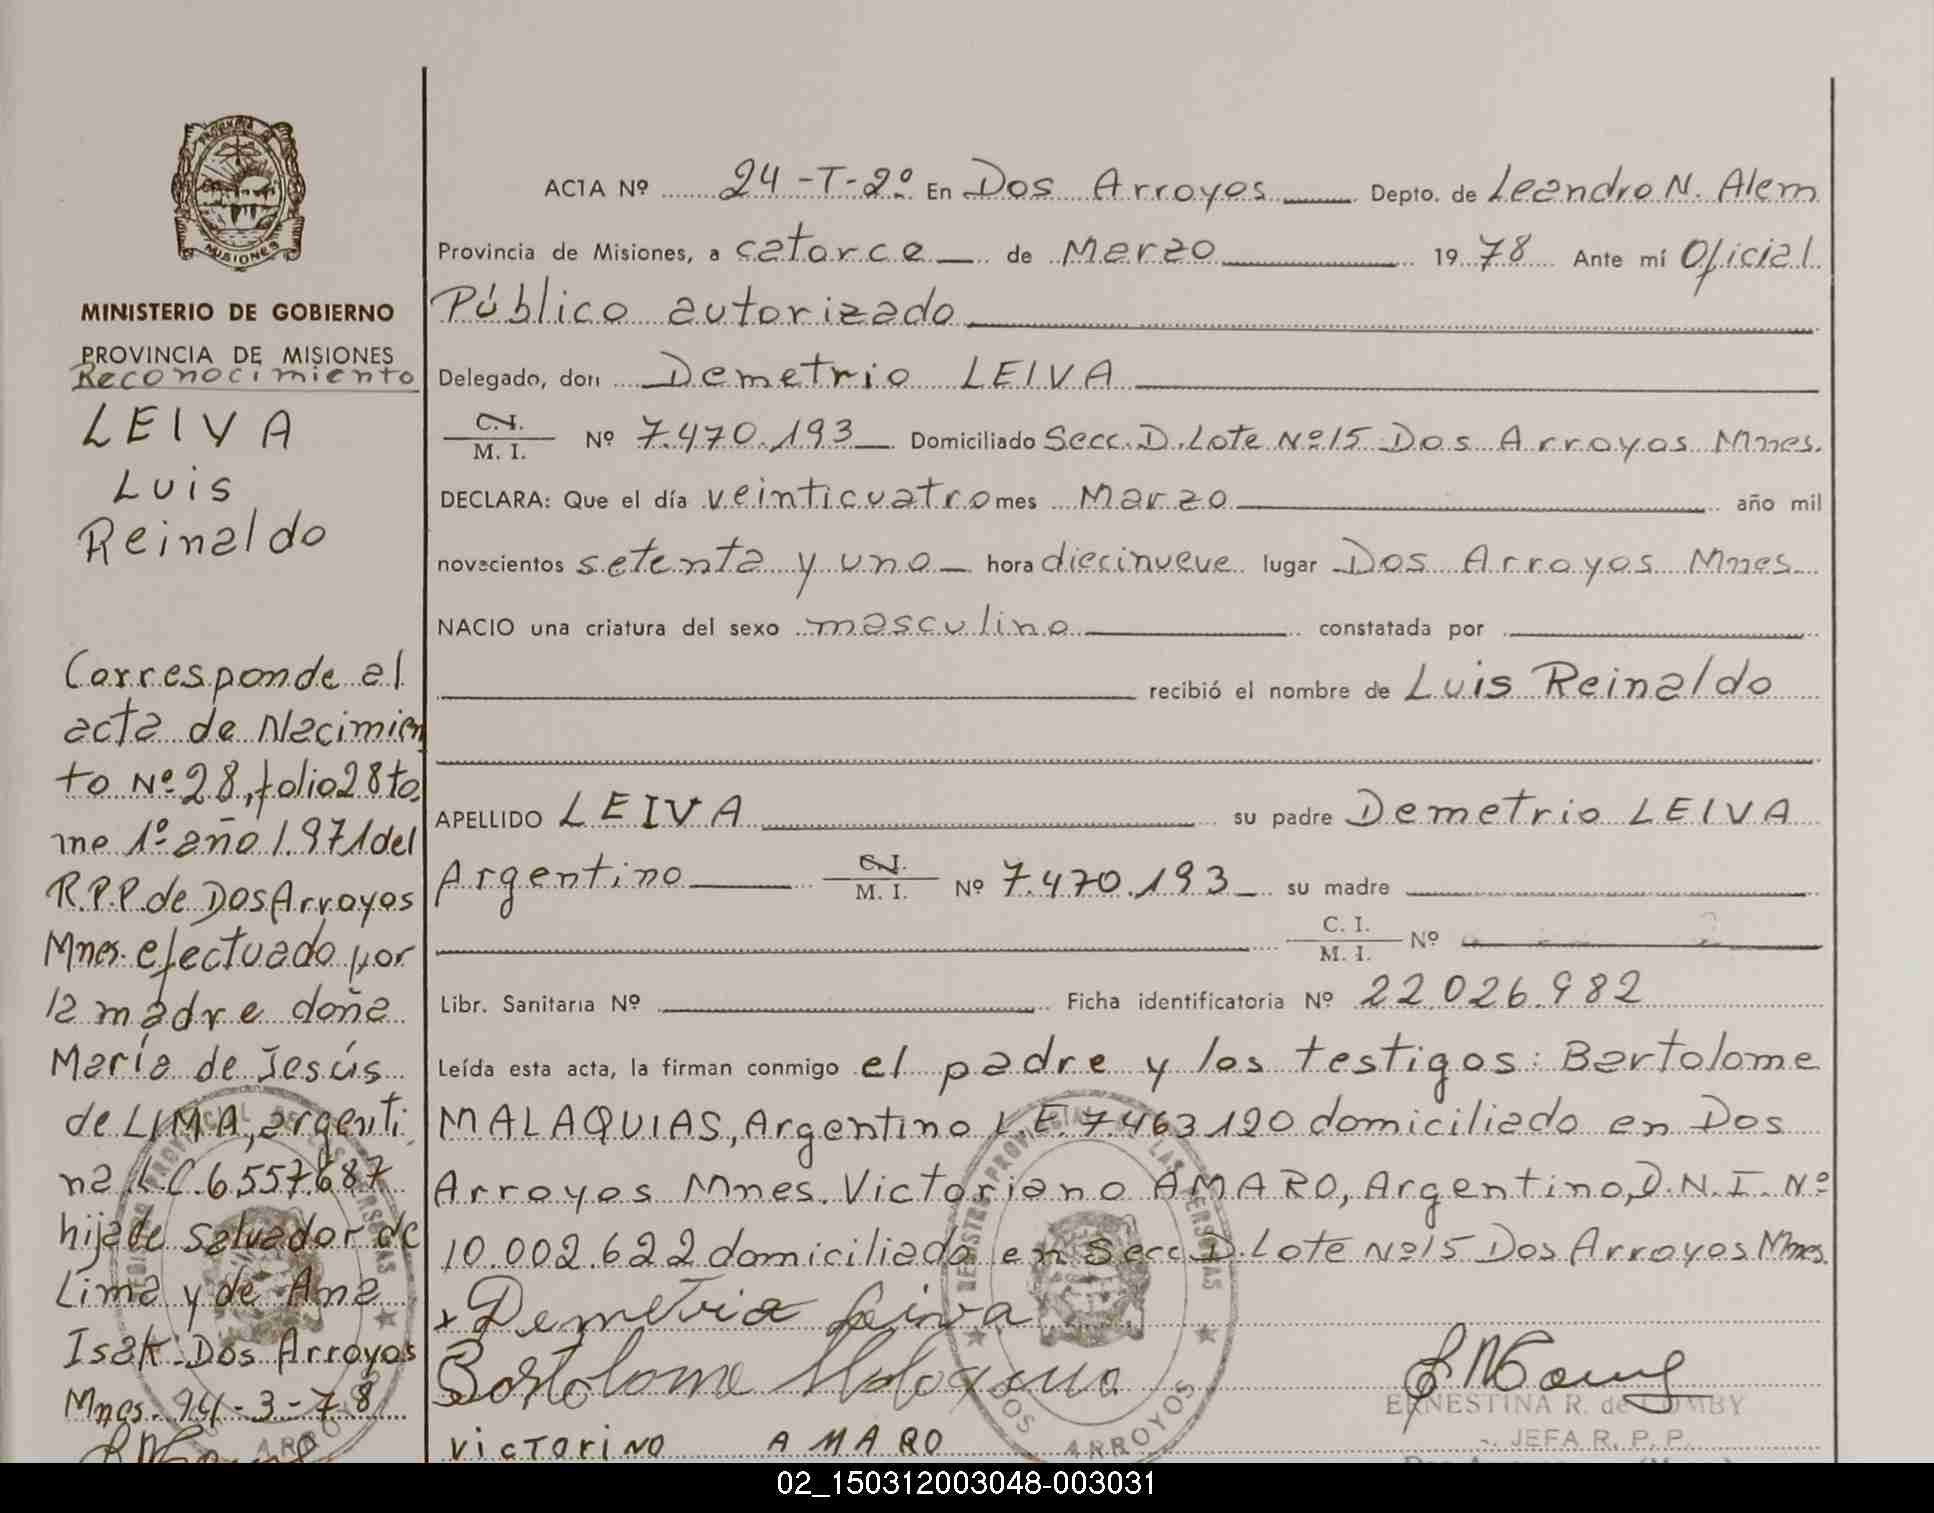 PROVINCIA DE
MISIONES
MINISTERIO DE GOBIERNO
PROVINCIA DE MISIONES
Reconocimiento
LEIVA
Luis
Reinaldo
Corresponde al
acta de Nacimien
to Nº 28, folio 28 to.
mo 1º año 1.971 del
R.P.P. de Dos Arroyos
Mnes. efectuado por
la madre doña
María de Jesús
de LIMA, argenti
na L.C. 6.557.687
hija de Salvador de
Lima y de Ana
Isak. Dos Arroyos
Mnes. 14-3-78
ACTA Nº 24-T-2º En Dos Arroyos Depto. de Leandro N. Alem
Provincia de Misiones, a catorce de Marzo 1978 Ante mí Oficial
Público autorizado
Delegado, don Demetrio LEIVA
C.I. / M. I. Nº 7.470.193 Domiciliado Secc. D. Lote Nº 15 Dos Arroyos Mnes.
DECLARA: Que el día veinticuatro mes Marzo año mil
novecientos setenta y uno hora diecinueve lugar Dos Arroyos Mnes.
NACIO una criatura del sexo masculino constatada por
recibió el nombre de Luis Reinaldo
APELLIDO LEIVA su padre Demetrio LEIVA
Argentino C.I. / M. I. Nº 7.470.193 su madre
C. I. / M. I. Nº
Libr. Sanitaria Nº Ficha identificatoria Nº 22.026.982
Leída esta acta, la firman conmigo el padre y los testigos: Bartolome
MALAQUIAS, Argentino L.E. 7.463.120 domiciliado en Dos
Arroyos Mnes. Victoriano AMARO, Argentino, D.N.I. Nº
10.002.622 domiciliado en Secc. D. Lote Nº 15 Dos Arroyos Mnes.
x Demetrio Leiva
Bartolome
ERNESTINA R. de COMBY
JEFA R. P. P.
VICTORINO AMARO
02_150312003048-003031